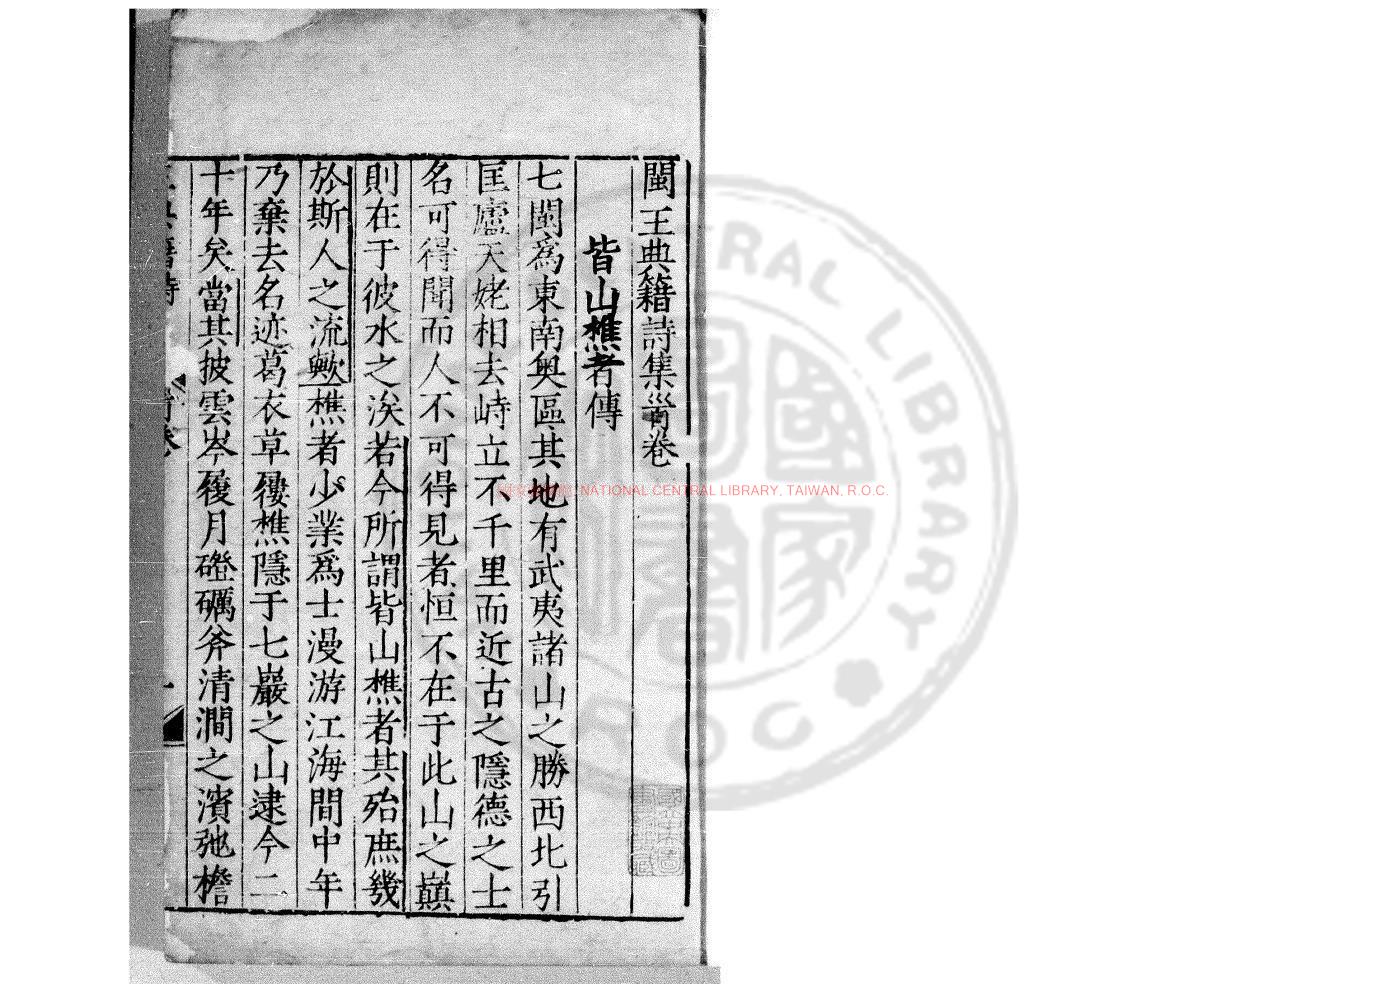 閩王典籍詩集首卷
皆山樵者傳
七閩爲東南奥區其地有武夷諸山之勝西北引
匡廬天姥相去峙立不千里而近古之隱德之士
名可得聞而人不可得見者恒不在于此山之巔
則在于彼水之涘若今所謂皆山樵者其殆庶幾
於斯人之流歟樵者少業爲士漫游江海間中年
乃棄去名迹葛衣草屨樵隱于七巖之山逮今二
十年矣當其披雲岑履月磴礪斧清澗之濱弛檐
NATIONAL CENTRAL LIBRARY, TAIWAN, R.O.C.
CENTRAL LIBRARY
R.O.C
國家圖書